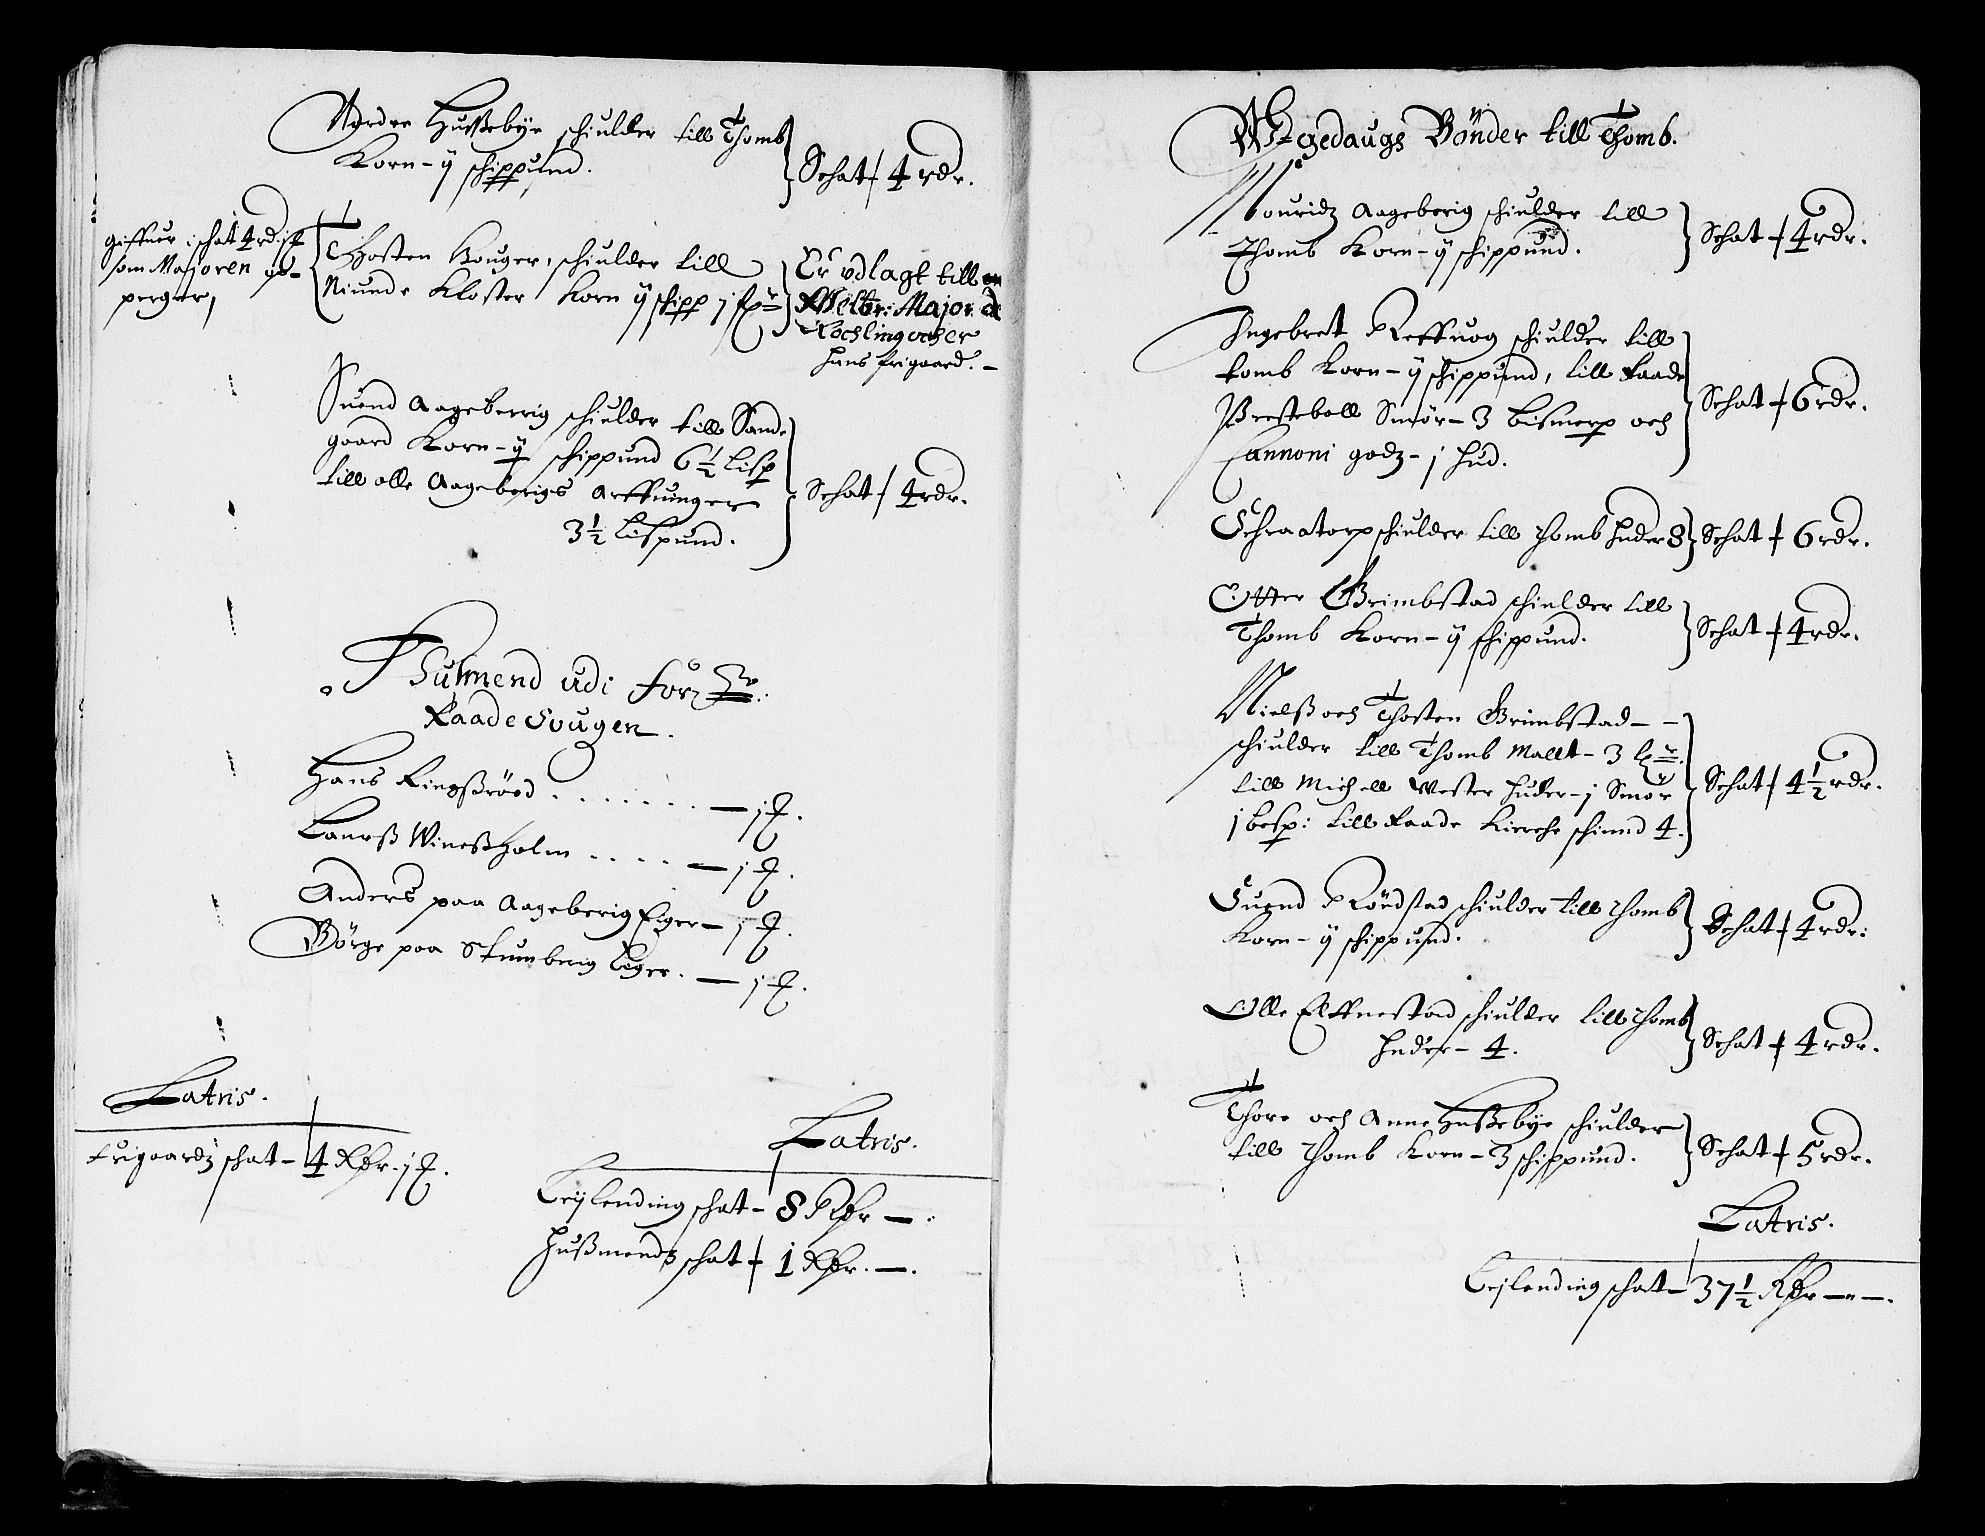 Nordre Hußebye schiulder till Thomb
Korn - ij schippund.
Schat / 4 rdr.
giffuer i schat 4 rd. j ℔
som Majoren op-
perger,
Thosten Bouger, schiulder till
Niunde Kloster Korn ij schipp j
Er vdlagt till
Major
Kochlingocher
hans frigaard. -
Suend Aageberrig schiulder till Sande
gaard Korn - ij schippund 6 1/2 Lisp
till olle Aageberigs Arffuinger
3 1/2 Lispund.
Schat / 4 rdr.
Husmend udi for:ne
Raade Sougen.
Hans Ringßröed . . . . . . . - j
Laurß Wineßholm . . . . - j
Anders paa Aageberig Eiger - j
Börge paa Stumberig Eiger. - j
Latris.
frigaardz schat - 4 Rdr. j
Latris.
Leylending schat - 8 Rdr - .
Hußmends schat / 1 Rdr. - .
Wdgedaugs Bönder till Thomb.
Mouridz Aageberig schiulder till
Thomb Korn - ij schippund.
Schat / 4 rdr.
Ingebret Reffuog schiulder till
tomb Korn - ij schippund, till Raade
Presteboll Smör - 3 bismerp och
Cannoni godz - j hud.
Schat / 6 rdr.
Schraatorp schiulder till Thomb huder 8
Schat / 6 rdr.
Otter Grimbstad schiulder till
Thomb Korn - ij schippund.
Schat / 4 rdr.
Nielß och Thosten Grimbstad - -
schiulder till Thomb Mallt - 3
till Michell Wester huder - j Smör
j besp: till Raade Kierche schinnd 4.
Schat / 4 1/2 rdr.
Suend Röedstad schiulder till Thomb
Korn - ij schippund.
Schat / 4 rdr:
Olle Elffnestad schiulder till Thomb
huder - 4.
Schat / 4 rdr.
Thore och Anne Hußebye schiulder
till Thomb Korn - 3 schippund.
Schat / 5 rdr.
Latris.
Leylending schat - 37 1/2 Rdr - - .